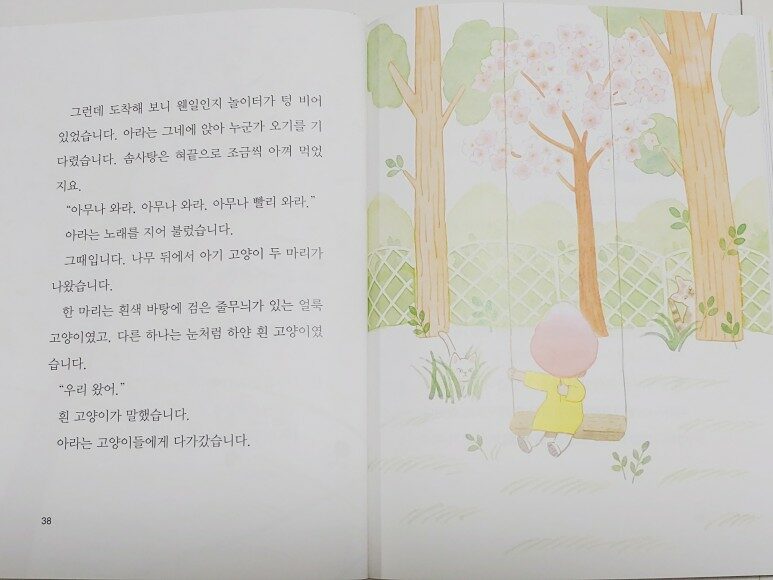 그런데 도착해 보니 웬일인지 놀이터가 텅 비어
있었습니다. 아라는 그네에 앉아 누군가 오기를 기
다렸습니다. 솜사탕은 혀끝으로 조금씩 아껴 먹었
지요.
“아무나 와라. 아무나 와라. 아무나 빨리 와라.”
아라는 노래를 지어 불렀습니다.
그때입니다. 나무 뒤에서 아기 고양이 두 마리가
나왔습니다.
한 마리는 흰색 바탕에 검은 줄무늬가 있는 얼룩
고양이였고, 다른 하나는 눈처럼 하얀 흰 고양이였
습니다.
“우리 왔어.”
흰 고양이가 말했습니다.
아라는 고양이들에게 다가갔습니다.
38